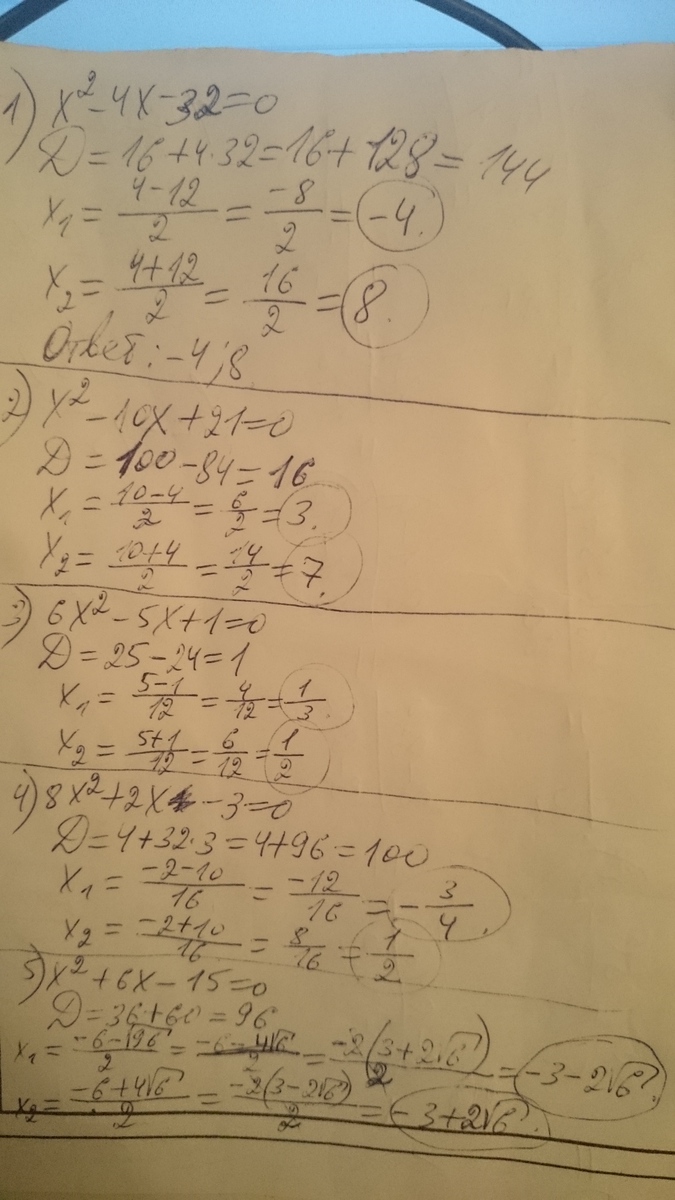 1) x² - 4x - 32 = 0
D = 16 + 4·32 = 16 + 128 = 144
x₁ = (4-12)/2 = -8/2 = -4.
x₂ = (4+12)/2 = 16/2 = 8.
Ответ: -4; 8
2) x² - 10x + 21 = 0
D = 100 - 84 = 16
x₁ = (10-4)/2 = 6/2 = 3.
x₂ = (10+4)/2 = 14/2 = 7.
3) 6x² - 5x + 1 = 0
D = 25 - 24 = 1
x₁ = (5-1)/12 = 4/12 = 1/3.
x₂ = (5+1)/12 = 6/12 = 1/2
4) 8x² + 2x - 3 = 0
D = 4 + 32·3 = 4 + 96 = 100
x₁ = (-2-10)/16 = -12/16 = -3/4.
x₂ = (-2+10)/16 = 8/16 = 1/2
5) x² + 6x - 15 = 0
D = 36 + 60 = 96
x₁ = (-6-√96)/2 = (-6-4√6)/2 = -2(3+2√6)/2 = -3-2√6.
x₂ = (-6+4√6)/2 = -2(3-2√6)/2 = -3+2√6.